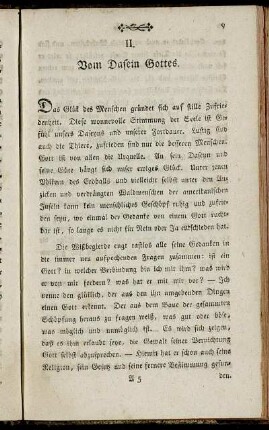 9
II.
Vom Dasein Gottes.
Das Glük des Menschen gründet sich auf stille Zufrie-
denheit. Diese wonnevolle Stimmung der Seele ist Ge-
fühl unsers Daseyns und unserer Fortdauer. Lustig sey
auch die Thiere, zufrieden sind nur die besseren Menschen.
Gott ist von allen die Urquelle. An sein Daseyn und
seine Güte hängt sich unser ewiges Glük. Unter jenen
des Erdballs und vielleicht selbst unter den
zicken und verdrängten Waldmenschen der amerikanischen
Inseln kann kein menschliches Geschöpf ruhig und zufrie-
den seyn, wo einmal der Gedanke von einem Gott ruchb-
bar ist, so lange es nicht ein Nein oder Ja entschieden hat.
Die Wißbegierde engt rastlos alle seine Gedanken in
die immer neu aufpochenden Fragen zusammen: ist ein
Gott? in welcher Verbindung bin ich mit ihm? was wird
er von mir fordern? was hat er mit mir vor? — Ich
nenne den glüklich, der aus den ihn umgebenden Dingen
einen Gott erkennt. Der aus dem Baue der gesammten
Schöpfung heraus zu fragen weiß, was gut oder böse,
was möglich und unmöglich ist. — Es wird sich zeigen,
daß es ihm erlaubt seie, die Gewalt seiner Vernichtung
Gott selbst abzusprechen. — Hiemit hat er schon auch seine
Religion, sein Gesez und seine fernere Bestimmung gefun-
A 5
den.